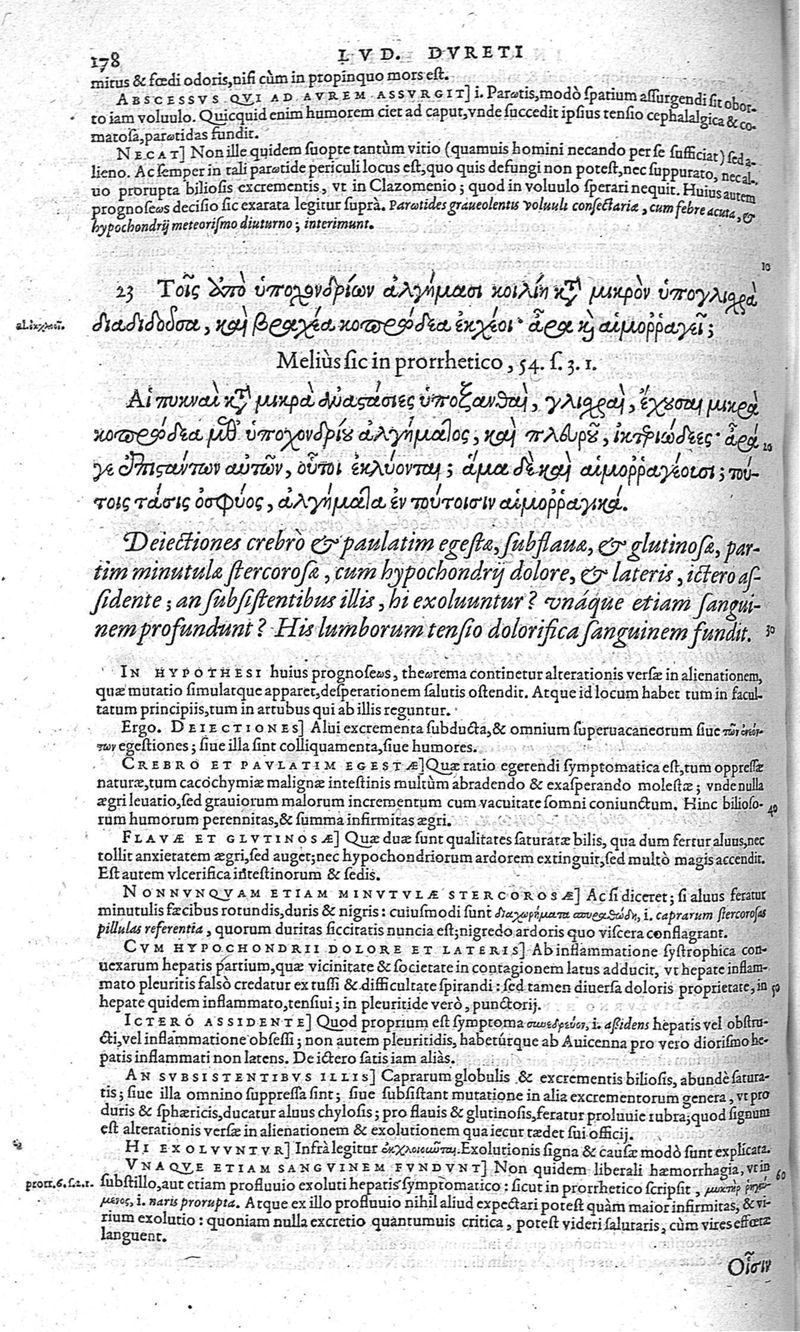 178 LVD. DVRETI
mitus & fœdi odoris, nisi cùm in propinquo mors est.
ABSCESSVS QVI AD AVREM ASSVRGIT] i. Parωtis, modò spatium assurgendi sit obor-
to iam voluulo. Quicquid enim humorem ciet ad caput, vnde succedit ipsius tensio cephalalgica & co-
matosa, parωtidas fundit.
NECAT] Non ille quidem suopte tantùm vitio (quamuis homini necando per se sufficiat) sed a-
lieno. Ac semper in tali parωtide periculi locus est, quo quis defungi non potest, nec suppurato, nec al-
uo prorupta biliosis excrementis, vt in Clazomenio; quod in voluulo sperari nequit. Huius autem
prognoseωs decisio sic exarata legitur suprà. Parωtides graueolentis voluuli consectariæ, cum febre acuta, &
hypochondrij meteorismo diuturno; interimunt.
10
23 Τοῖς ἀπὸ ὑποχονδρίων ἀλγήμασι κοιλίη κτ̃ μικρὸν ὑπογλίσχρα
διαδιδοῦσα, καὶ βραχέα κοπρώδεα ἐκχέοι· ἆρα κὶ αἱμορῥαγεῖ;
Meliùs sic in prorrhetico, 54. s. 3. 1.
Αἱ πυκναὶ κτ̃ μικρὰ ἀναστάσιες ὑποξανθαὶ, γλίσχραι, ἔχουσαι μικρὰ
κοπρώδεα μεθ' ὑποχονδρίου ἀλγήματος, καὶ πλευροῦ, ἰκτεριώδεες· ἆρά 20
γε ἐπιστάντων αὐτῶν, οὗτοι ἐκλύονται; ἅμα δὲ καὶ αἱμορῥαγέουσι; τού-
τοις τάσις ὀσφύος, ἀλγήματα ἐν τούτοισιν αἱμορῥαγικά.
Deiectiones crebrò & paulatim egestæ, subflauæ, & glutinosæ, par-
tim minutulæ stercorosæ, cum hypochondrij dolore, & lateris, ictero as-
sidente; an subsistentibus illis, hi exoluuntur? vnáque etiam sangui-
nem profundunt? His lumborum tensio dolorifica sanguinem fundit. 30
IN HYPOTHESI huius prognoseωs, theωrema continetur alterationis versæ in alienationem,
quæ mutatio simulatque apparet, desperationem salutis ostendit. Atque id locum habet tum in facul-
tatum principiis, tum in artubus qui ab illis reguntur.
Ergo. DEIECTIONES] Alui excrementa subducta, & omnium superuacaneorum siue
egestiones; siue illa sint colliquamenta, siue humores.
CREBRO ET PAVLATIM EGESTÆ] Quæ ratio egerendi symptomatica est, tum oppressæ
naturæ, tum cacochymiæ malignæ intestinis multùm abradendo & exasperando molestæ; vnde nulla
ægri leuatio, sed grauiorum malorum incrementum cum vacuitate somni coniunctum. Hinc bilioso- 40
rum humorum perennitas, & summa infirmitas ægri.
FLAVÆ ET GLVTINOSÆ] Quæ duæ sunt qualitates saturatæ bilis, qua dum fertur aluus, nec
tollit anxietatem ægri, sed auget; nec hypochondriorum ardorem extinguit, sed multò magis accendit.
Est autem vlcerifica intestinorum & sedis.
NONNVNQVAM ETIAM MINVTVLÆ STERCOROSÆ] Ac si diceret; si aluus feratur
minutulis fæcibus rotundis, duris & nigris: cuiusmodi sunt διαχωρήματα σπυραθώδη, i. caprarum stercorosas
pillulas referentia, quorum duritas siccitatis nuncia est; nigredo ardoris quo viscera conflagrant.
CVM HYPOCHONDRII DOLORE ET LATERIS] Ab inflammatione systrophica con-
uexarum hepatis partium, quæ vicinitate & societate in contagionem latus adducit, vt hepate inflam-
mato pleuritis falsò credatur ex tussi & difficultate spirandi: sed tamen diuersa doloris proprietate, in 50
hepate quidem inflammato, tensiui; in pleuritide verò, punctorij.
ICTERO ASSIDENTE] Quod proprium est symptoma συνεδρεῦον, i. assidens hepatis vel obstru-
cti, vel inflammatione obsessi; non autem pleuritidis, habetúrque ab Auicenna pro vero diorismo he-
patis inflammati non latens. De ictero satis iam aliàs.
AN SVBSISTENTIBVS ILLIS] Caprarum globulis & excrementis biliosis, abundè satura-
tis; siue illa omnino suppressa sint; siue subsistant mutatione in alia excrementorum genera, vt pro
duris & sphæricis, ducatur aluus chylosis; pro flauis & glutinosis, feratur proluuie rubra; quod signum
est alterationis versæ in alienationem & exolutionem qua iecur tædet sui officij.
HI EXOLVVNTVR] Infrà legitur Exolutionis signa & causæ modò sunt explicata.
VNAQVE ETIAM SANGVINEM FVNDVNT] Non quidem liberali hæmorrhagia, vt in 60
prorr. 6. s. 2. 1. substillo, aut etiam profluuio exoluti hepatis symptomatico: sicut in prorrhetico scripsit,
i. naris prorupta. Atque ex illo profluuio nihil aliud expectari potest quàm maior infirmitas, & vi-
rium exolutio: quoniam nulla excretio quantumuis critica, potest videri salutaris, cùm vires effœtæ
languent.
Οἷσιν